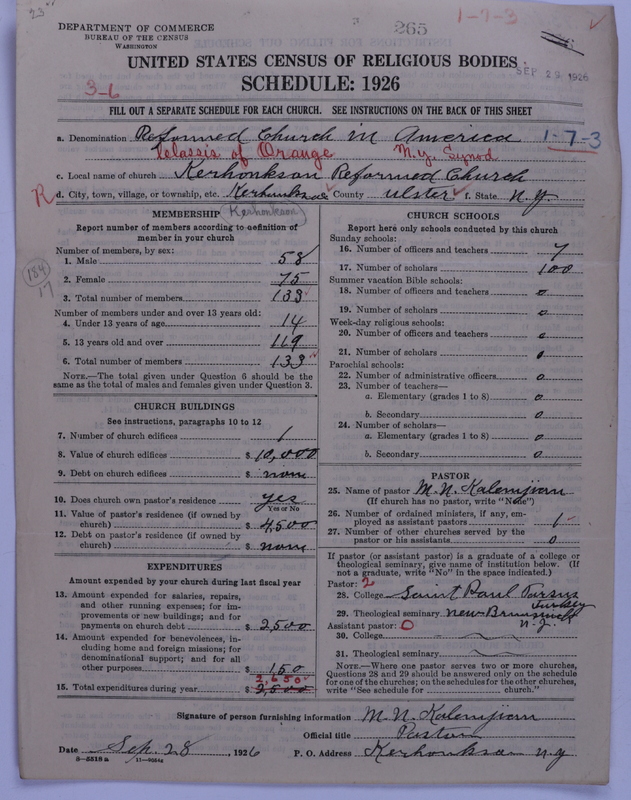 23
265
1-7-3
DEPARTMENT OF COMMERCE
BUREAU OF THE CENSUS
WASHINGTON
UNITED STATES CENSUS OF RELIGIOUS BODIES
SEP 29 1926
SCHEDULE: 1926
3-6
FILL OUT A SEPARATE SCHEDULE FOR EACH CHURCH. SEE INSTRUCTIONS ON THE BACK OF THIS SHEET
a. Denomination Reformed Church in America 1-7-3
Classis of Orange N.Y. Synod
c. Local name of church Kerhonkson Reformed Church
R d. City, town, village, or township, etc. Kerhonkson County Ulster f. State N.Y.
(Kerhonkson)
MEMBERSHIP
Report number of members according to definition of
member in your church
Number of members, by sex:
1. Male 58
2. Female 75
3. Total number of members 133
184
17
Number of members under and over 13 years old:
4. Under 13 years of age 14
5. 13 years old and over 119
6. Total number of members 133
NOTE.—The total given under Question 6 should be the
same as the total of males and females given under Question 3.
CHURCH BUILDINGS
See instructions, paragraphs 10 to 12
7. Number of church edifices 1
8. Value of church edifices $ 10,000
9. Debt on church edifices $ none
10. Does church own pastor's residence yes
Yes or No
11. Value of pastor's residence (if owned by
church) $ 4,500
12. Debt on pastor's residence (if owned by
church) $ none
EXPENDITURES
Amount expended by your church during last fiscal year
13. Amount expended for salaries, repairs,
and other running expenses; for im-
provements or new buildings; and for
payments on church debt $ 2,500
14. Amount expended for benevolences, in-
cluding home and foreign missions; for
denominational support; and for all
other purposes $ 150
2,650
15. Total expenditures during year $ 2,500
CHURCH SCHOOLS
Report here only schools conducted by this church
Sunday schools:
16. Number of officers and teachers 7
17. Number of scholars 100
Summer vacation Bible schools:
18. Number of officers and teachers 0
19. Number of scholars 0
Week-day religious schools:
20. Number of officers and teachers 0
21. Number of scholars 0
Parochial schools:
22. Number of administrative officers 0
23. Number of teachers—
a. Elementary (grades 1 to 8) 0
b. Secondary 0
24. Number of scholars—
a. Elementary (grades 1 to 8) 0
b. Secondary 0
PASTOR
25. Name of pastor M. N. Kalemjian
(If church has no pastor, write "None")
26. Number of ordained ministers, if any, em-
ployed as assistant pastors 1
27. Number of other churches served by the
pastor or his assistants 0
If pastor (or assistant pastor) is a graduate of a college or
theological seminary, give name of institution below. (If
not a graduate, write "No" in the space indicated.)
Pastor: 2
28. College Saint Paul Tarsus
Turkey
29. Theological seminary New Brunswick
N. J.
Assistant pastor: 0
30. College
31. Theological seminary
NOTE.—Where one pastor serves two or more churches,
Questions 28 and 29 should be answered only on the schedule
for one of the churches; on the schedules for the other churches,
write "See schedule for church."
Signature of person furnishing information M. N. Kalemjian
Official title Pastor
Date Sep. 28, 1926 P. O. Address Kerhonkson N.Y.
8—5518a 11—9054a